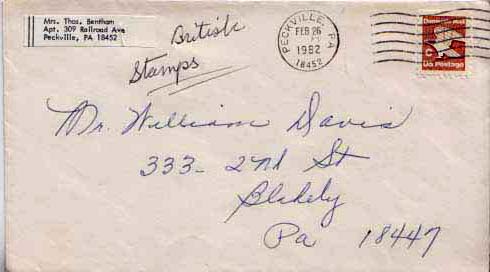 Mrs. Thos. Bentham
Apt. 309 Railroad Ave
Peckville, PA 18452
British
Stamps
PECKVILLE, PA
FEB 26
1982
18452
Domestic Mail
C
US Postage
Mr. William Davis
333- 2nd St
Blakely
Pa 18447